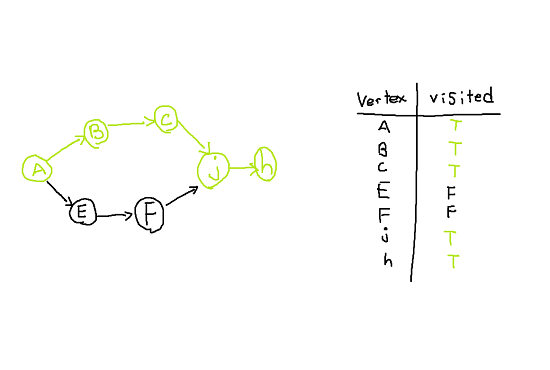 A
B
C
E
F
j
h
Vertex visited
A T
B T
C T
E F
F F
j T
h T